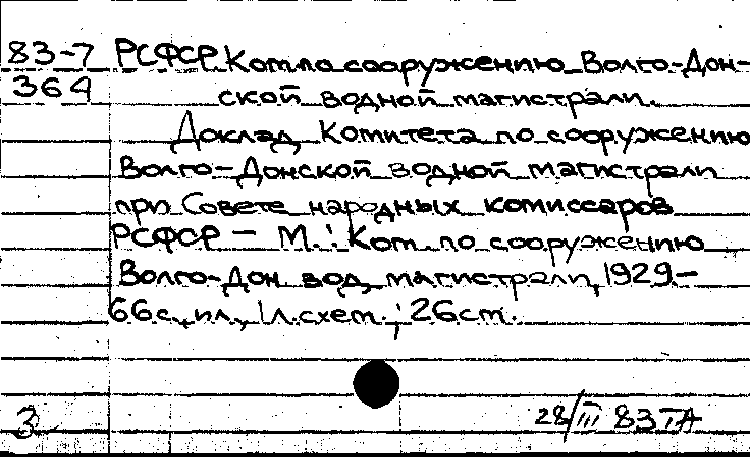 83-7 РСФСР. Ком. по сооружению Волго-Дон-
364 ской водной магистрали.
Доклад Комитета по сооружению
Волго-Донской водной магистрали
при Совете народных комиссаров
РСФСР – М.: Ком. по сооружению
Волго-Дон. вод. магистрали, 1929–
66с., ил., 1л.схем.; 26см.
3 28/III 83